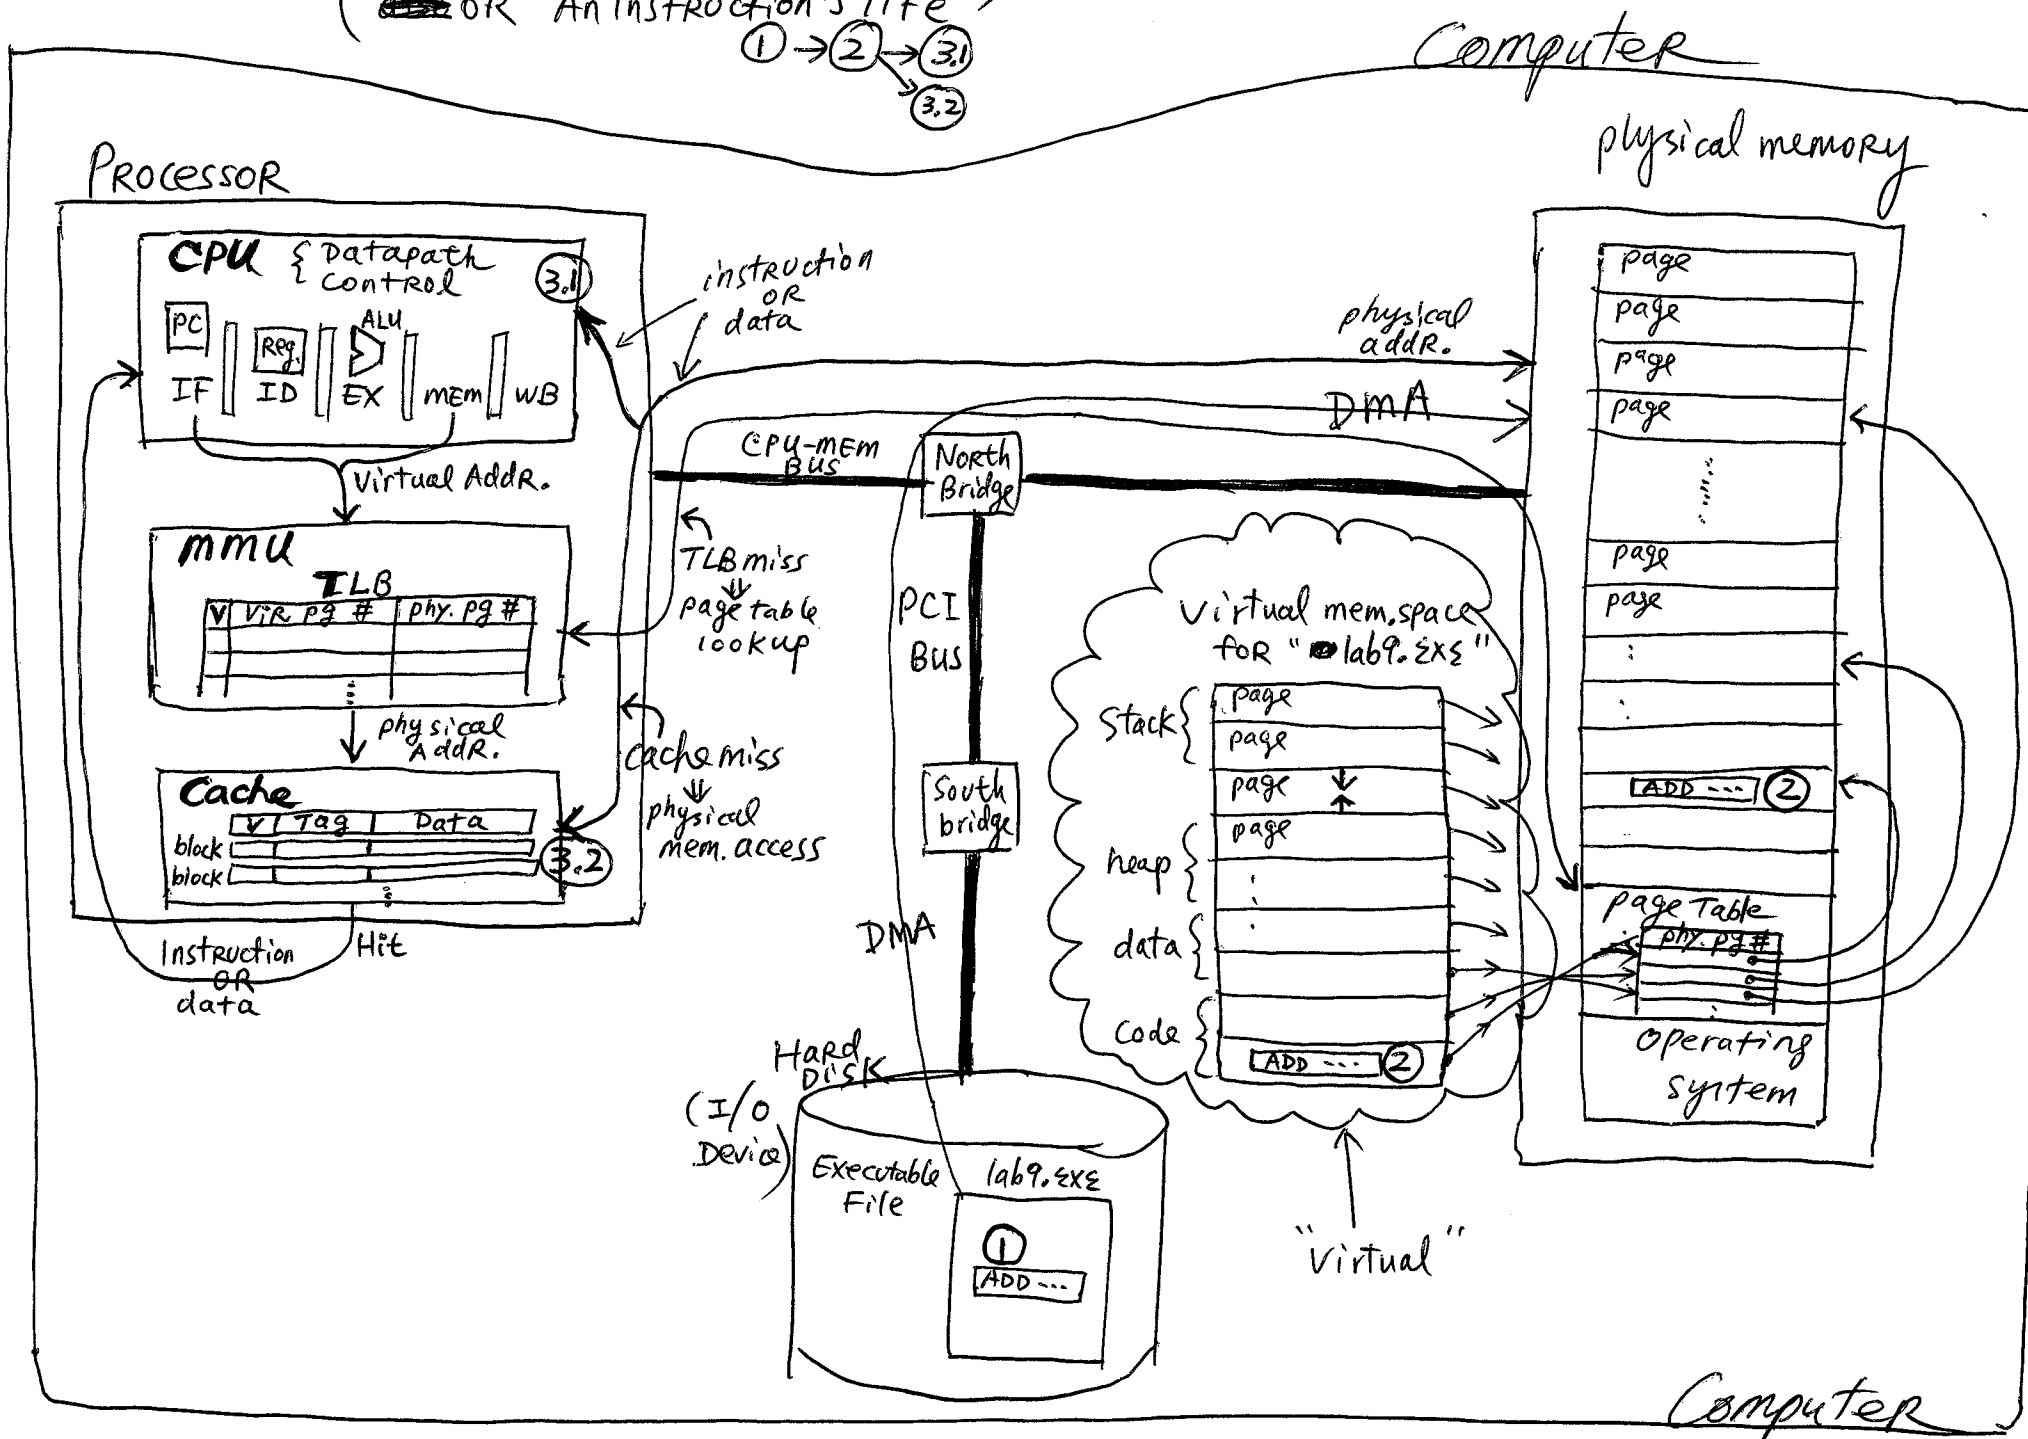 ( OR An Instruction's life )
1 → 2 → 3.1
3.2
Computer
Processor
CPU { Datapath
{ Control
3.1
PC
Reg.
ALU
IF
ID
EX
mem
WB
Virtual Addr.
MMU
TLB
V
Vir. pg #
phy. pg #
physical
Addr.
Cache
V
Tag
Data
block
block
3.2
Instruction
OR
data
Hit
instruction
OR
data
CPU-MEM
BUS
TLB miss
⇓
page table
lookup
cache miss
⇓
physical
mem. access
North
Bridge
PCI
BUS
South
bridge
DMA
Hard
Disk
(I/O
Device)
Executable
File
lab9.exe
1
ADD ---
physical
addr.
DMA
Virtual mem.space
for "lab9.exe"
Stack
heap
data
Code
page
page
page
page
ADD ---
2
"Virtual"
physical memory
page
page
page
page
page
page
ADD ---
2
page Table
phy. pg #
operating
system
Computer